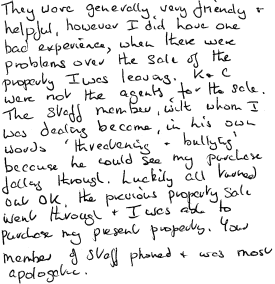 They were generally very friendly +
helpful, however I did have one
bad experience, when there were
problems over the sale of the
property I was leaving. K & C
were not the agents for the sale.
The staff member, with whom I
was dealing became, in his own
words 'threatening + bullying'
because he could see my purchase
falling through. Luckily all turned
out OK, the previous property sale
went through + I was able to
purchase my present property. Your
member of staff phoned + was most
apologetic.